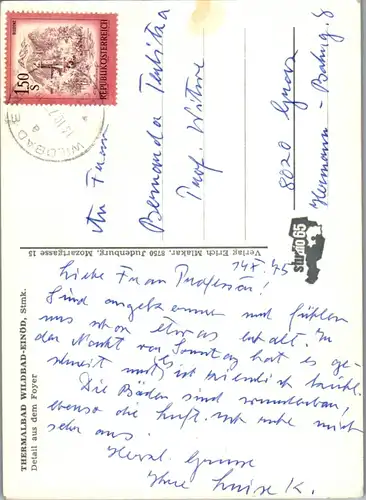 1.50
S
REPUBLIK ÖSTERREICH
WILDBAD E
An Frau
Bernarda
Prof. Witwe
8020 Graz
Hermann - Bahrg. 8
studio 65
Verlag Erich Mlakar, 8750 Judenburg, Mozartgasse 15
THERMALBAD WILDBAD-EINÖD, Stmk.
Detail aus dem Foyer
Liebe Frau Professor!
Sind angekommen und fühlen
uns schon etwas erholt. In
der Nacht von Sonntag hat es ge-
schneit und es ist ziemlich
Die Bäder sind wunderbar,
ebenso die Luft. Ich ruhe mich
sehr aus.
Herzl. Grüsse
Ihre Luise K.